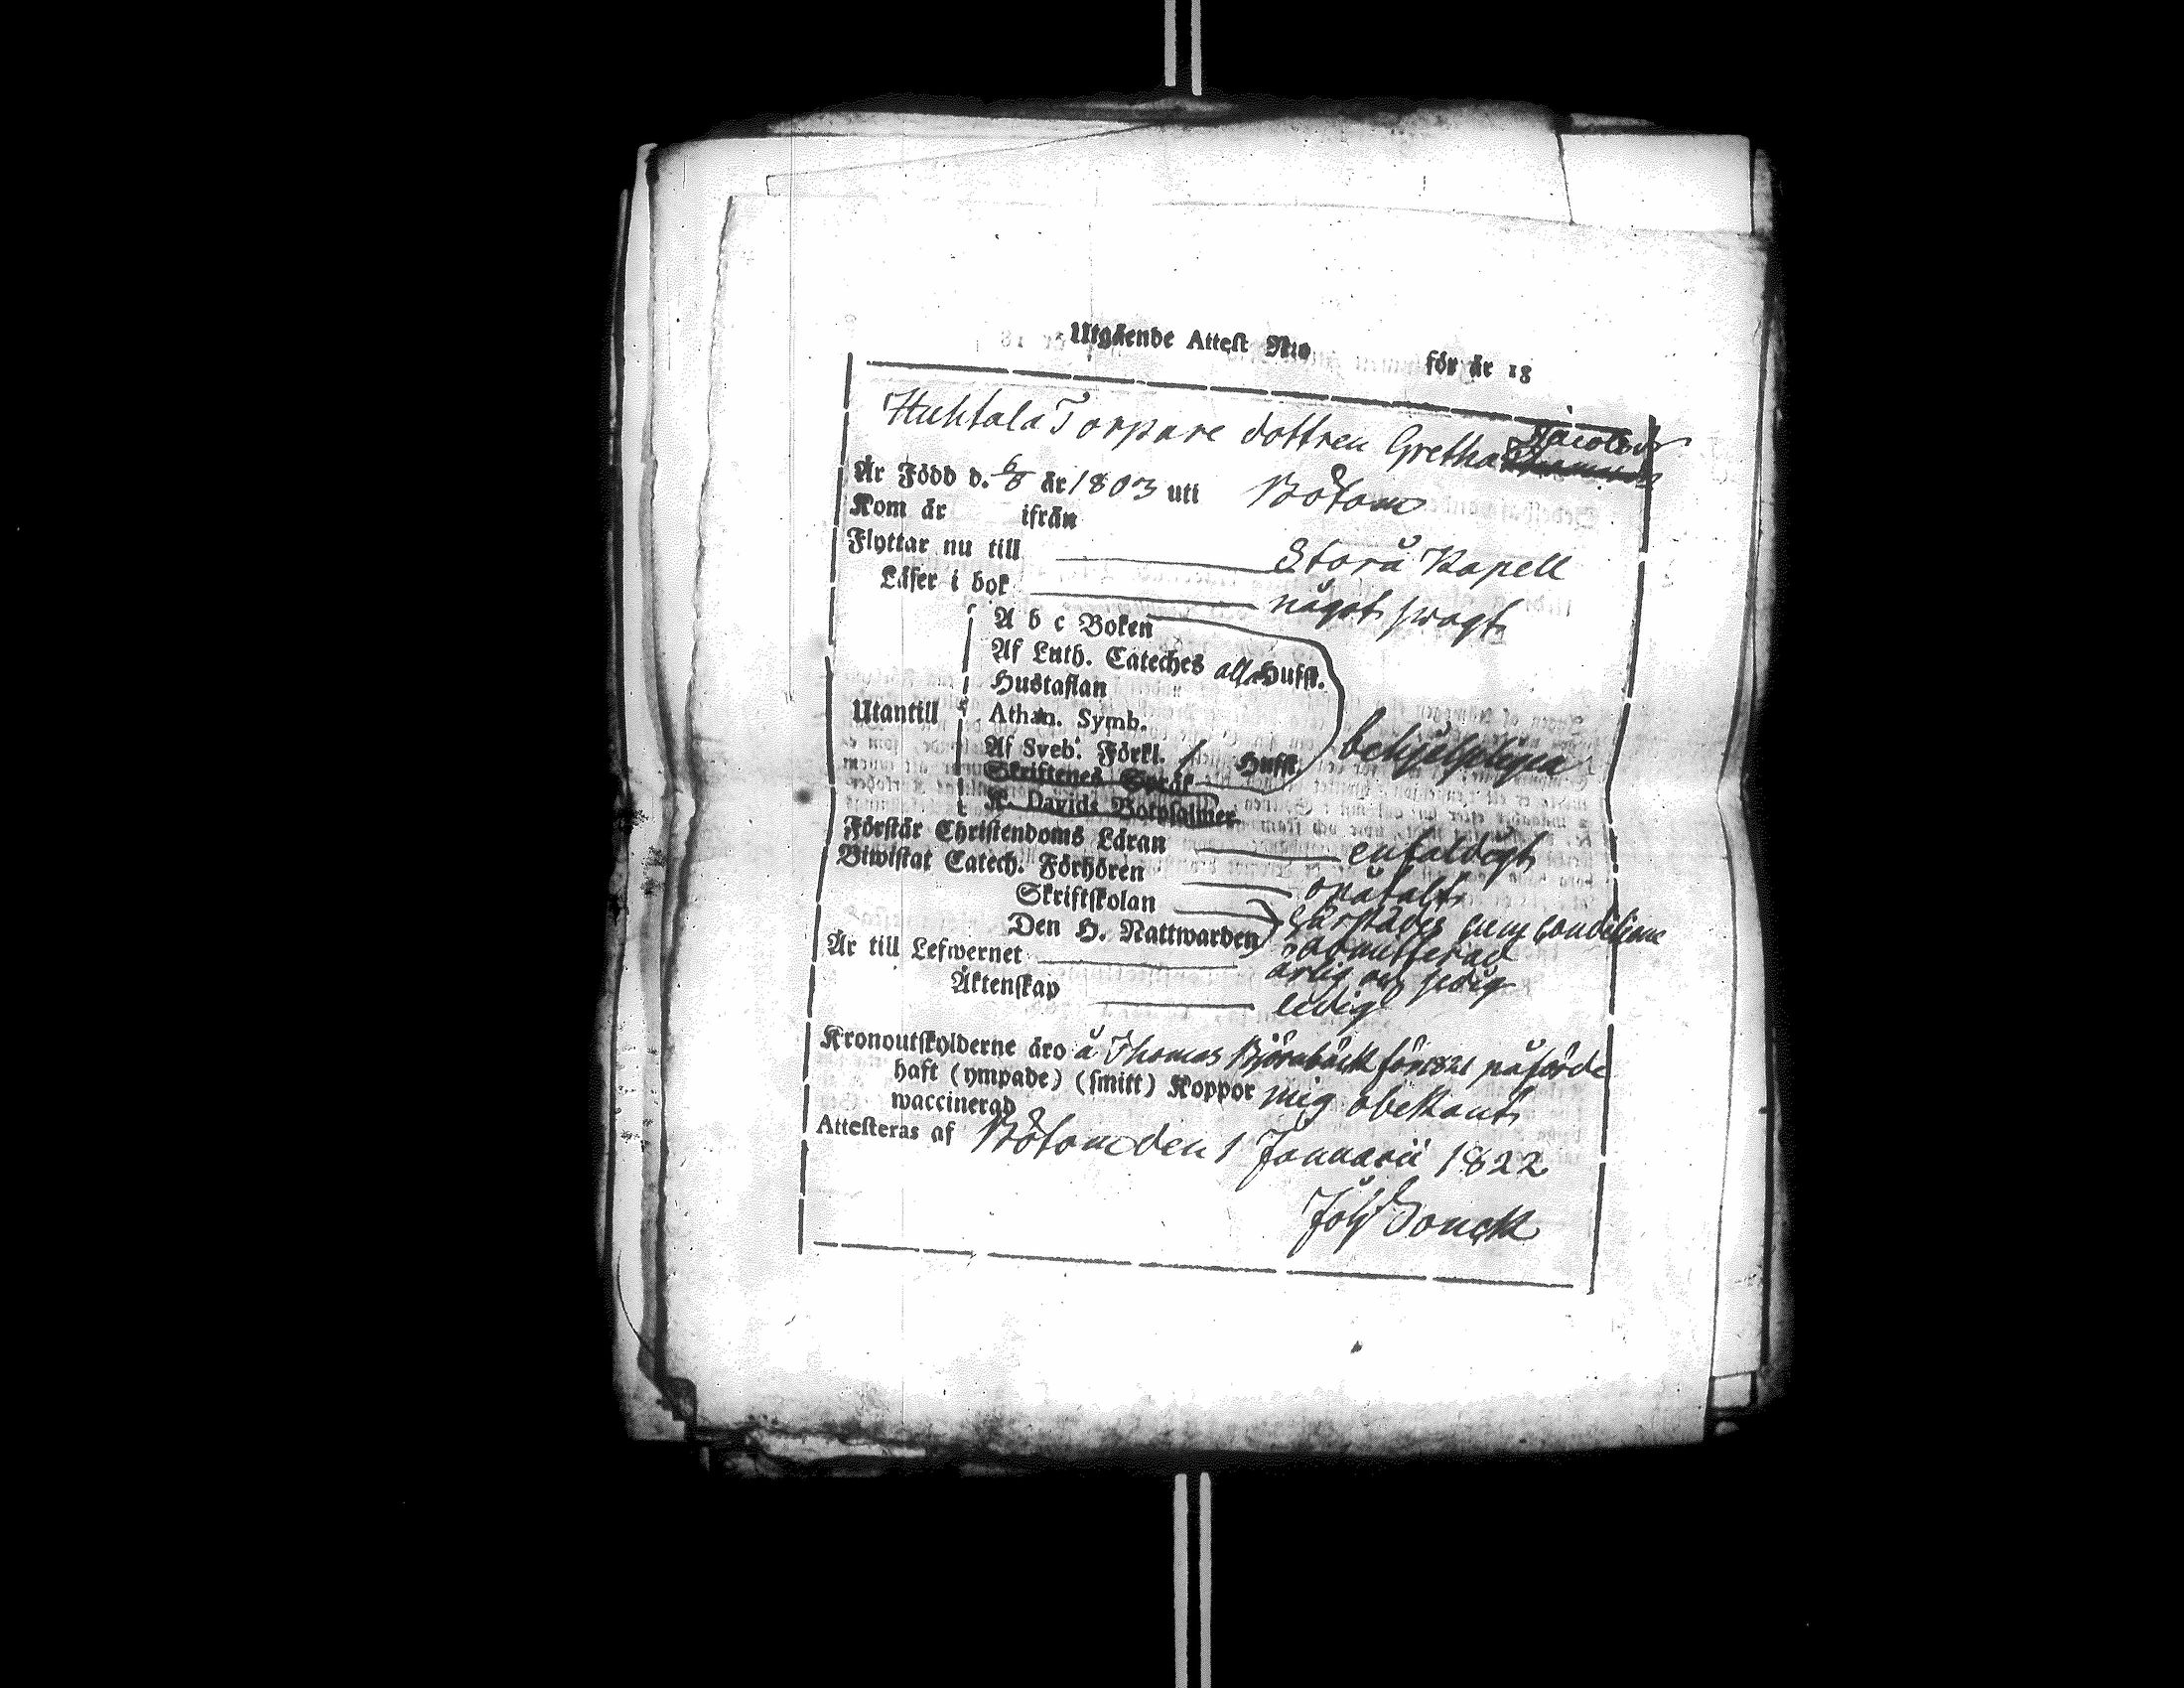 Utgående Attest N:ro för år 18
Huhtala Torpare dottren Gretha Jacobsdr
Är Född d. 6/8 år 1803 uti Bötom
Kom år ifrån
Flyttar nu till Storå Kapell
Läser i bok något swagt
A b c Boken
Af Luth. Cateches alla Hufst.
Hustaflan
Utantill Athan. Symb.
Af Sveb. Förkl. 1 Hufst. behjelpligen
Skriftenes Språk
K. Davids Botpsalmer
Förstår Christendoms Läran enfaldigt
Biwistat Catech. Förhören opåtalt
Skriftskolan härstädes cum conditione
Den H. Nattwarden admitterad
Är till Lefwernet ärlig och sedig
Äktenskap ledig
Kronoutskylderne äro å Thomas Björnbäck för 1821 påförde
haft (ympade) (smitt) Koppor mig obekant
waccinerad
Attesteras af Bötom den 1 Januarii 1822
Joh Donck